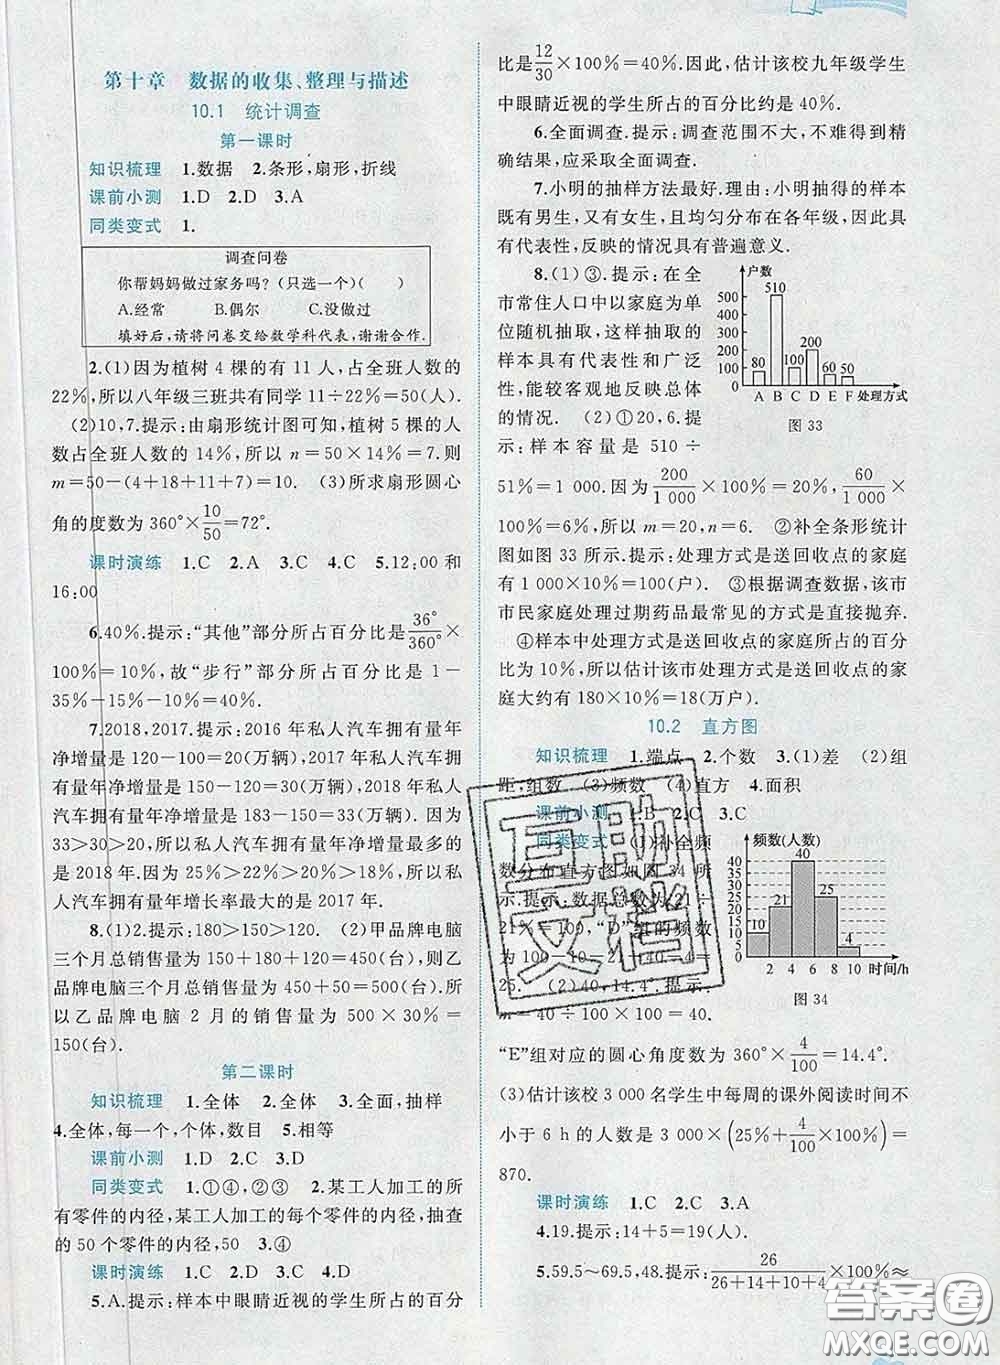 第十章 数据的收集、整理与描述
10.1 统计调查
第一课时
知识梳理 1.数据 2.条形,扇形,折线
课前小测 1.D 2.D 3.A
同类变式 1.
调查问卷
你帮妈妈做过家务吗?(只选一个)( )
A.经常 B.偶尔 C.没做过
填好后,请将问卷交给数学科代表,谢谢合作.
2.(1)因为植树 4 棵的有 11 人,占全班人数的
22%,所以八年级三班共有同学 11÷22%=50(人).
(2)10,7.提示:由扇形统计图可知,植树 5 棵的
人数占全班人数的 14%,所以 n=50×14%=7.则
m=50-(4+18+11+7)=10. (3)所求扇形圆心
角的度数为 360°×10/50=72°.
课时演练 1.C 2.A 3.C 4.C 5.12:00 和
16:00
6.40%.提示:“其他”部分所占百分比是36°/360°×
100%=10%,故“步行”部分所占百分比是 1-
35%-15%-10%=40%.
7.2018,2017.提示:2016 年私人汽车拥有量年
净增量是 120-100=20(万辆),2017 年私人汽车拥
有量年净增量是 150-120=30(万辆),2018 年私人
汽车拥有量年净增量是 183-150=33(万辆).因为
33>30>20,所以私人汽车拥有量年净增量最多的
是 2018 年.因为 25%>22%>20%>18%,所以私
人汽车拥有量年增长率最大的是 2017 年.
8.(1)2.提示:180>150>120. (2)甲品牌电脑
三个月总销售量为 150+180+120=450(台),则乙
品牌电脑三个月总销售量为 450+50=500(台).所
以乙品牌电脑 2 月的销售量为 500×30%=
150(台).
第二课时
知识梳理 1.全体 2.全体 3.全面,抽样
4.全体,每一个,个体,数目 5.相等
课前小测 1.D 2.C 3.D
同类变式 1.①④,②③ 2.某工人加工的所
有零件的内径,某工人加工的每个零件的内径,抽查
的 50 个零件的内径,50 3.④
课时演练 1.C 2.C 3.C 4.D
5.A.提示:样本中眼睛近视的学生所占的百分
比是12/30×100%=40%.因此,估计该校九年级学生
中眼睛近视的学生所占的百分比约是 40%.
6.全面调查.提示:调查范围不大,不难得到精
确结果,应采取全面调查.
7.小明的抽样方法最好.理由:小明抽得的样本
既有男生,又有女生,且均匀分布在各年级,因此具
有代表性,反映的情况具有普遍意义.
8.(1)③.提示:在全
市常住人口中以家庭为单
位随机抽取,这样抽取的
样本具有代表性和广泛
性,能较客观地反映总体
的情况. (2)①20,6.提
示:样本容量是 510÷
户数
500
400
300
200
100
0
80 510 100 200 60 50
A B C D E F 处理方式
图 33
51%=1 000.因为200/1 000×100%=20%,60/1 000×
100%=6%,所以 m=20,n=6. ②补全条形统计
图如图 33 所示.提示:处理方式是送回收点的家庭
有 1 000×10%=100(户). ③根据调查数据,该市
市民家庭处理过期药品最常见的方式是直接抛弃.
④样本中处理方式是送回收点的家庭所占的百分
比为 10%,所以估计该市处理方式是送回收点的家
庭大约有 180×10%=18(万户).
10.2 直方图
知识梳理 1.端点 2.个数 3.(1)差 (2)组
距,组数 (3)频数 (4)直方 4.面积
课前小测 1.B 2.C 3.C
同类变式 (1)补全频
数分布直方图如图 34 所
示.提示:数据总数为 21÷
21%=100,“D”组的频数
为 100-10-21-40-4=
25. (2)40,14.4°.
m=40÷100×100=40.
频数(人数)
40
35
30
25
20
15
10
5
0
10 21 40 25 4
2 4 6 8 10 时间/h
图 34
“E”组对应的圆心角度数为 360°×4/100=14.4°.
(3)估计该校 3 000 名学生中每周的课外阅读时间不
小于 6 h 的人数是 3 000×(25%+4/100×100%)=
870.
课时演练 1.C 2.C 3.A
4.19.提示:14+5=19(人).
5.59.5~69.5,48.提示:26/26+14+10+4×100%≈
互助文档
答案圈
MXQE.COM